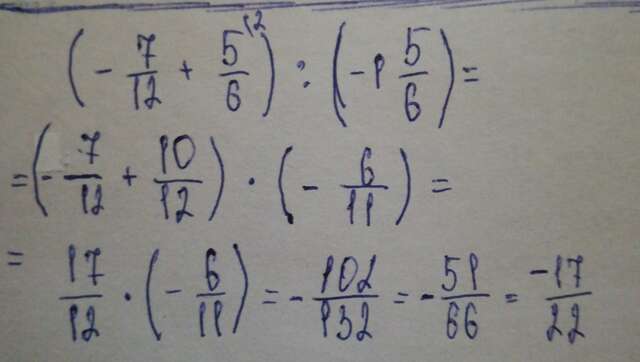 (- 7/12 + 5/6^12) : (-1 5/6) =
= (- 7/12 + 10/12) · (- 6/11) =
= 17/12 · (- 6/11) = - 102/132 = - 51/66 = -17/22